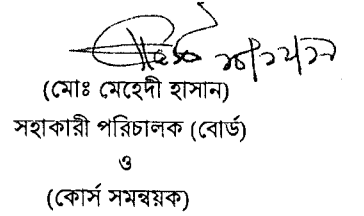 (মোঃ মেহেদী হাসান)
সহাকারী পরিচালক (বোর্ড)
ও
(কোর্স সমন্বয়ক)